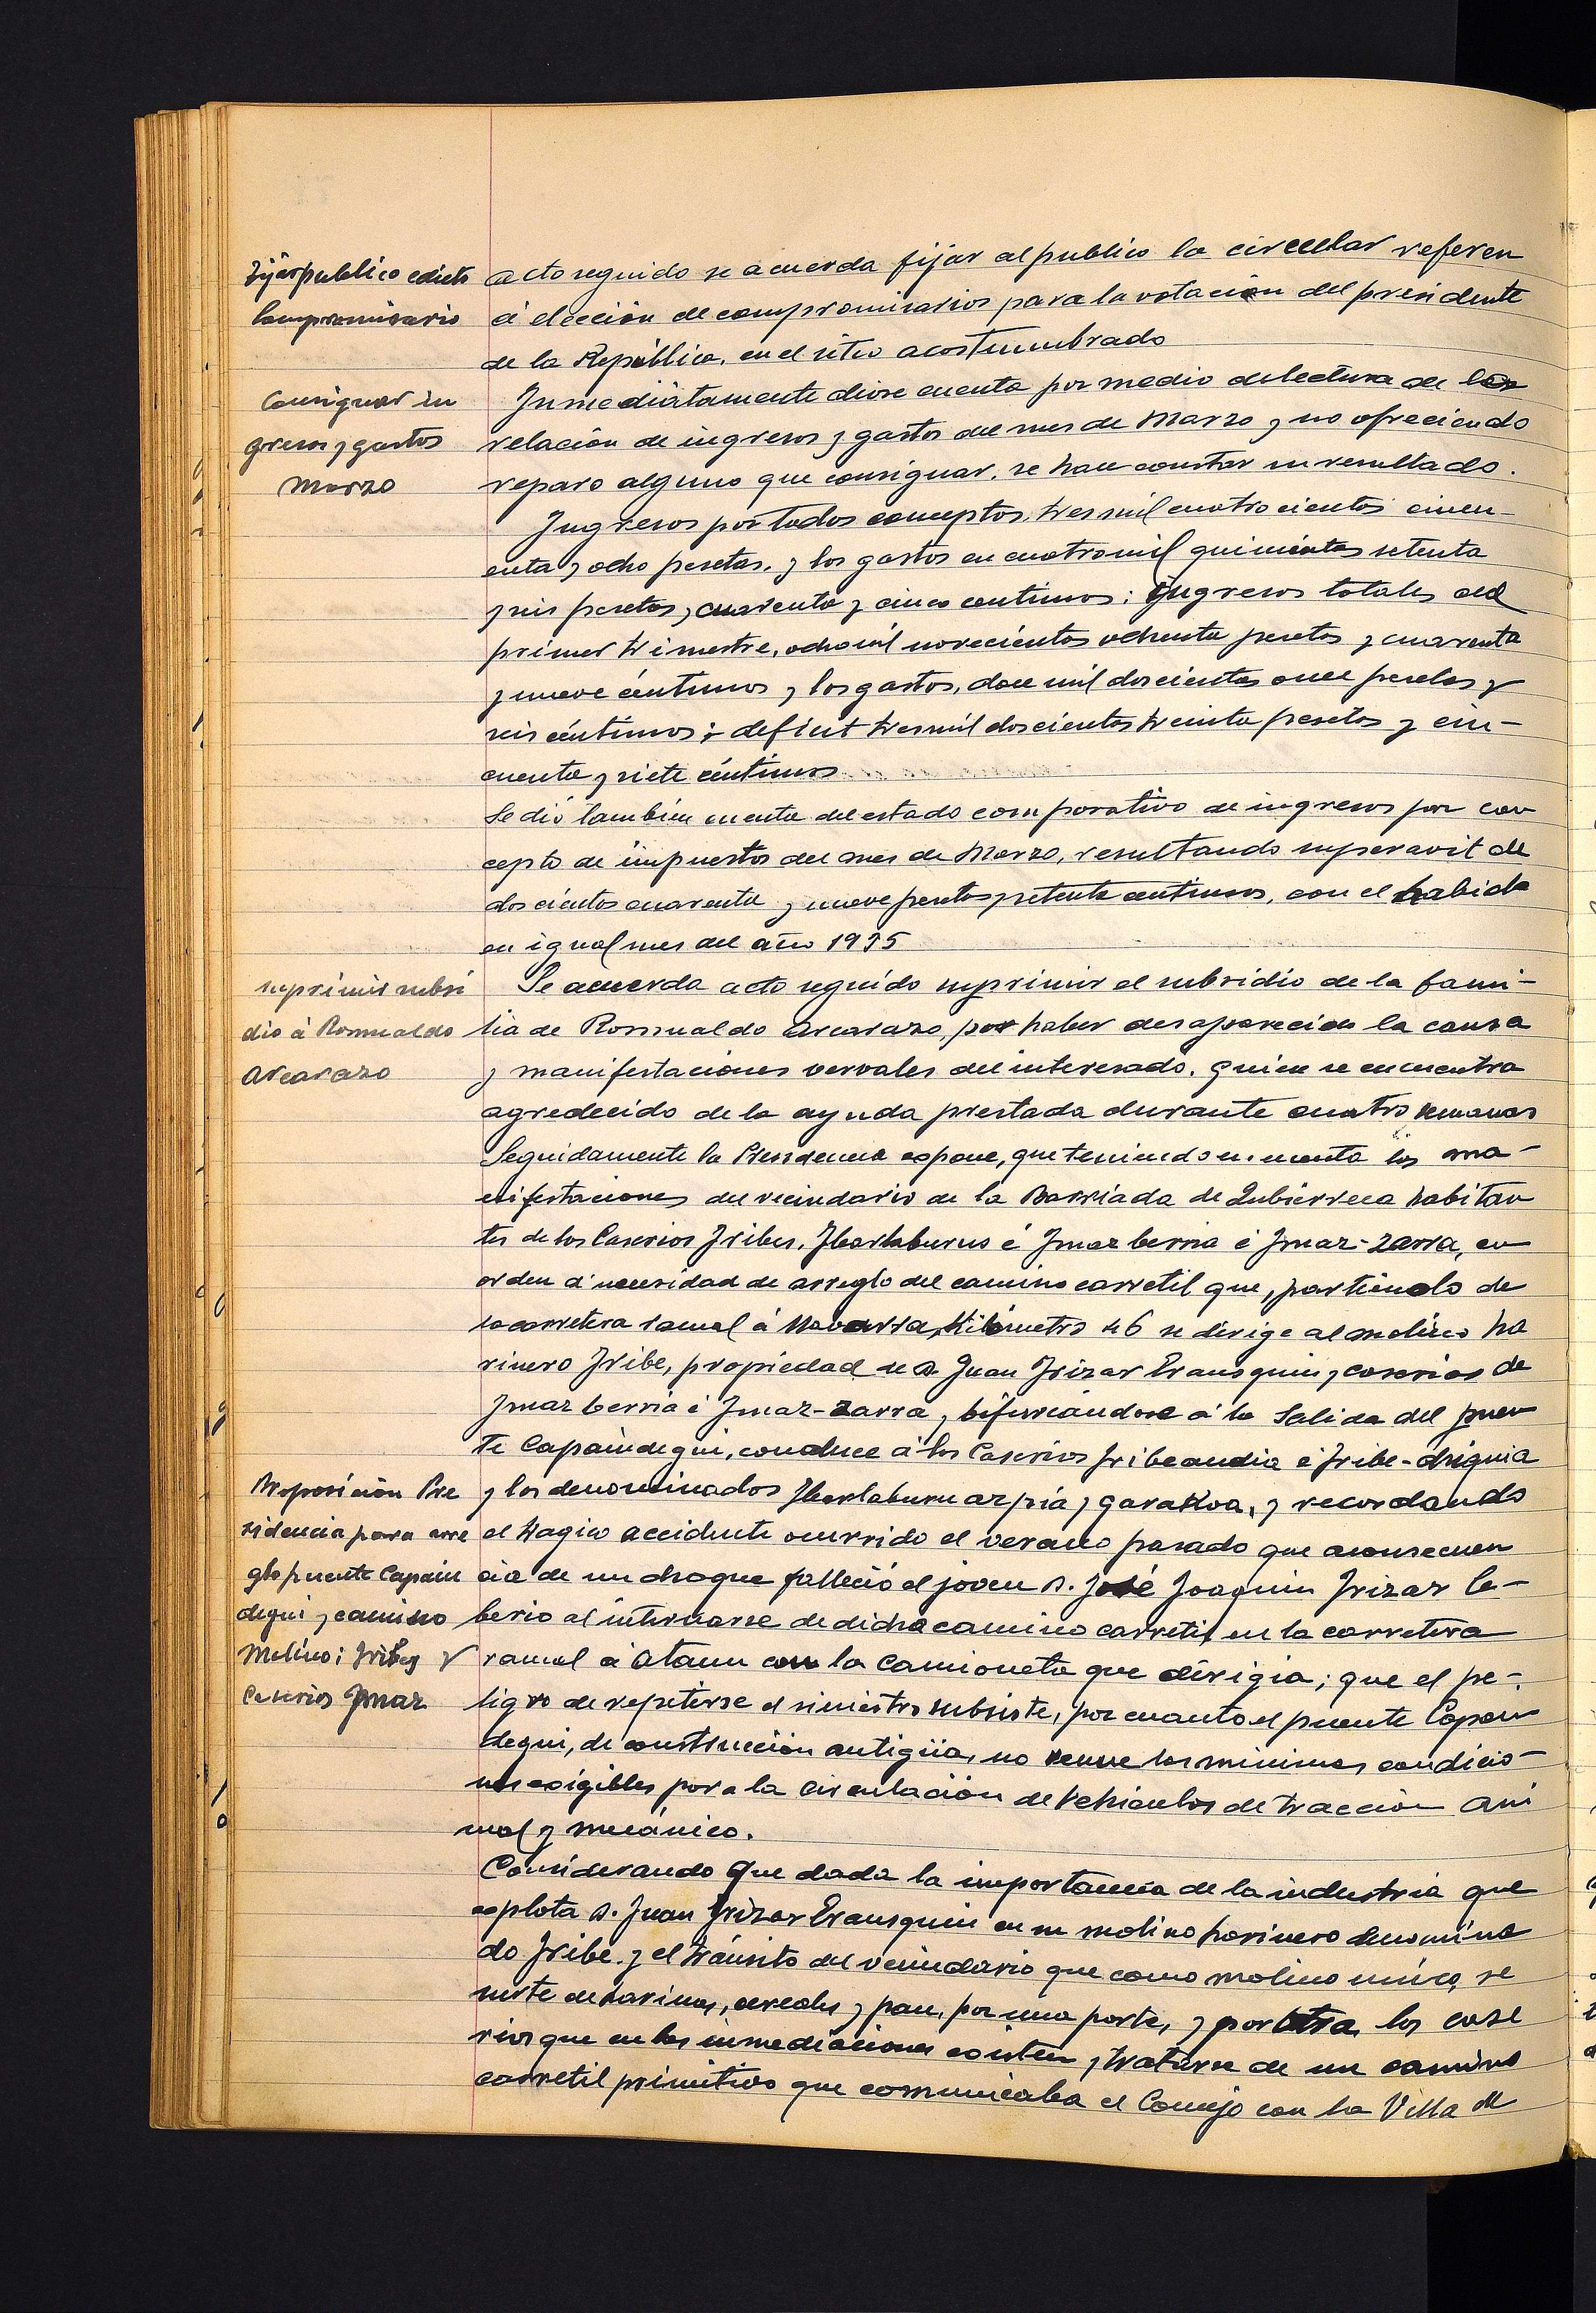 Fijar publico edicto
Compromisario
acto seguido se acuerda fijar al publico la circular referen
á elección de compromisarios para la votación del presidente
de la República, en el sitio acostumbrado
Consignar in
gresos y gastos
Marzo
Inmediatamente diose cuenta por medio de lectura de las
relación de ingresos y gastos del mes de Marzo y no ofreciendo
reparo alguno que consignar, se hace constar su resultado.
Ingresos por todos conceptos, tres mil cuatrocientos cincu-
enta y ocho pesetas, y los gastos en cuatro mil quinientas setenta
y seis pesetas, cuarenta y cinco centimos; Ingresos totales del
primer trimestre, ocho mil novecientos ochenta pesetas y cuarenta
y nueve céntimos y los gastos, doce mil doscientas once pesetas y
seis céntimos; deficit tres mil doscientos treinta pesetas y cin-
cuenta y siete céntimos
Se dió también cuenta del estado comparativo de ingresos por con
cepto de impuestos del mes de Marzo, resultando superavit de
doscientos cuarenta y nueve pesetas y setenta centimos, con el habido
en igual mes del año 1935
suprimir subsi
dio á Romualdo
Arcarazo
Se acuerda acto seguido suprimir el subsidio de la fami-
lia de Romualdo Arcarazo, por haber desaparecido la causa
y manifestaciones vervales del interesado, quien se encuentra
agredecido de la ayuda prestada durante cuatro semanas
Seguidamente la Presidencia expone, que teniendo en cuenta las ma-
nifestaciones del vecindario de la Barriada de habitan
tes de los Caserios Iribes, Ibarlaburus é Imaz berria é Imaz-zarra, en
orden á necesidad de arreglo del camino carretil que, partiendo de
la carretera ramal á Navarra, Kilómetro 46 se dirige al molino ha
rinero Iribe, propiedad de D. Juan Irizar Erausquin y caserios de
Imaz berria é Imaz-zarra, y bifurcándose á la Salida del puen
te Capaindegui, conduce á los Caserios Iribeandia é Iribe-chiquia
Proposición Pre
sidencia para arre
glo puente Capain
degui y camino
Molino; Iribes y
Caserios Imaz
y los denominados Ibarlaburu azpia y garakoa, y recordando
el tragico accidente ocurrido el verano pasado que aconsecuen
cia de un choque falleció el joven D. José Joaquin Irizar Ce-
berio al internarse de dicho camino carretil en la carretera
ramal á Ataun con la Camioneta que dirigia; que el pe-
ligro de repetirse el siniestro subsiste, por cuanto el puente Capain
degui, de construcción antigüa, no reune las minimas condicio-
nes exigibles para la circulación de vehiculos de tracción ani
mal y mecánico.
Considerando que dada la importancia de la industria que
explota D. Juan Irizar Erausquin en su molino harinero denomina
do Iribe, y el tránsito del vecindario que como molino único, se
surte de harinas, cereales y pan, por una parte, y por otra los case
rios que en las inmediaciones existen, y tratarse de un camino
carretil primitivo que comunicaba el Concejo con la Villa de